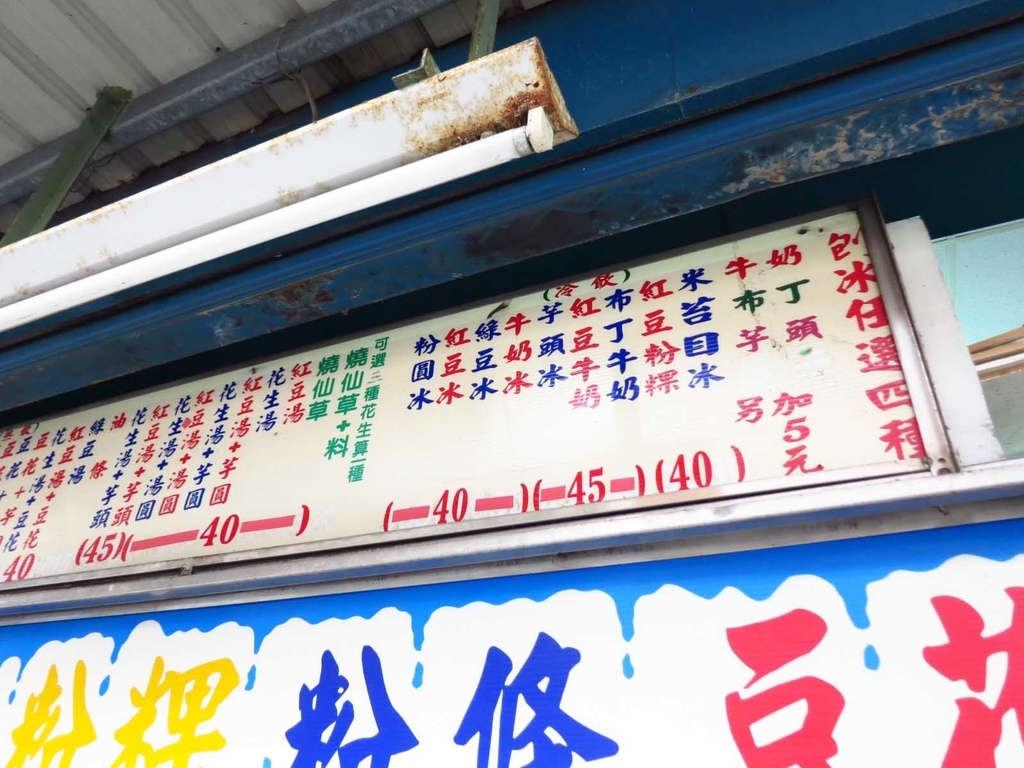 刨冰任選四種
牛奶 布丁 芋頭 另加5元
(冷飲)
米苔目冰
紅豆粉粿
布丁牛奶
紅豆牛奶
芋頭冰
牛奶冰
綠豆冰
紅豆冰
粉圓冰
(40)
(45)
(40)
可選三種花生算一種
燒仙草+料
燒仙草
紅豆湯
花生湯
紅豆湯+芋圓
花生湯+芋圓
紅豆湯+湯圓
花生湯+湯圓
紅豆湯+芋頭
花生湯+芋頭
油條
綠豆湯
紅豆湯
(40)
(45)
40
粉粿
粉條
豆花